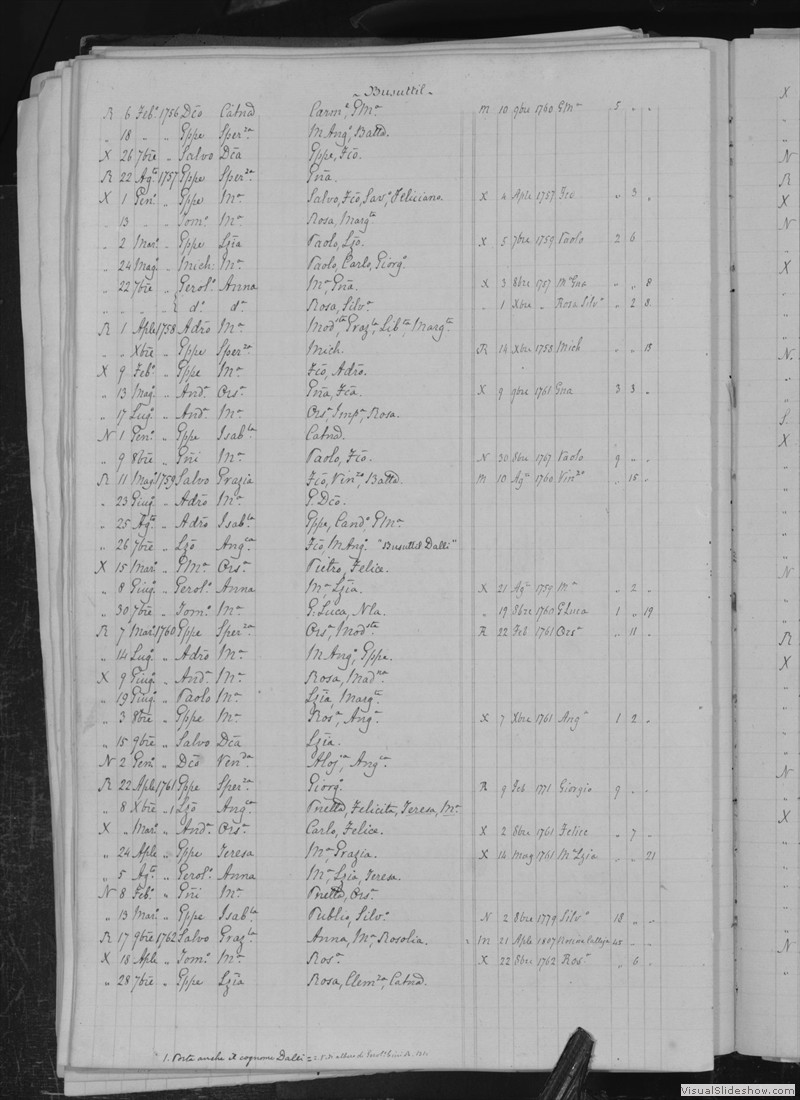 Busuttil
R 6 Feb.o 1756 Dc̃o Catnd Carme, GMa m 10 9bre 1760 GMa 5 " "
" 18 " " Gppe Sperza MAnga, Battd.
X 26 7bre " Salvo Dc̃a Gppe, Fc̃o.
R 22 Agto 1757 Gppe Sperza Gña.
X 1 Geno " Gppe Ma Salvo, Fc̃o, Savo, Feliciano. X 4 Aple 1757 Fco " 3 "
" 13 " " Tomo Ma Rosa, Margta
" 2 Maro " Gppe Lzia Paolo, Lzo. X 5 7bre 1759 Paolo 2 6
" 24 Mago " Mich: Ma Paolo, Carlo, Giorgo
" 22 7bre " Gerolo Anna Ma, Gña. X 3 8bre 1757 Ma Gna " " 8
" " " " E do do Rosa, Silva " 1 Xbre " Rosa Silva " 2 8
R 1 Aple 1758 Adr̃o Ma Modsta, Grazla, Libta, Margta
" " Xbre " Gppe Sperza Mich. R 14 Xbre 1758 Mich " " 13
X 9 Febo " Gppe Ma Fc̃o, Adro.
" 13 Mago " Anda Orsa Gña, Fc̃a. X 9 9bre 1761 Gna 3 3 "
" 17 Lugo " Anda Ma Orsa, Impa, Rosa.
N 1 Geno " Gppe Isabla Catnd.
" 9 8bre " Gñi Ma Paolo, Fc̃o. N 30 8bre 1767 Paolo 9 " "
R 11 Mago 1759 Salvo Grazia Fc̃o, Vinzo, Battd. m 10 Agto 1760 Vinzo " 15 "
" 23 Giugo " Adr̃o Ma G. Dc̃o.
" 25 Agto " Adr̃o Isabla Gppe, Cando, GMa
" 26 7bre " Lzo Angca Fc̃o, MAnga "Busuttil Dalli"
X 15 Maro " GMa Orsa Pietro, Felice.
" 8 Giugo " Gerolo Anna Ma, Lzia. X 21 Agto 1759 Ma " 2 "
" 30 7bre " Tomo Ma G. Luca, Nla. " 19 8bre 1760 GLuca 1 " 19
R 7 Maro 1760 Gppe Sperza Orsa, Modsta R 22 Feb 1761 Orsa " 11 "
" 14 Lugo " Adr̃o Ma MAnga, Gppe.
X 9 Giugo " Anda Ma Rosa, Madna
" 19 Giugo " Paolo Ma Lzia, Margta
" 3 8bre " Gppe Ma Rosa, Anga X 7 Xbre 1761 Anga 1 2 "
" 15 9bre " Salvo Dc̃a Lzia.
N 2 Geno " Dc̃o Venda Alojia, Angca
R 22 Aple 1761 Gppe Sperza Giorgo R 9 Feb 1771 Giorgio 9 " "
" 8 Xbre " 1 Lzo Angca Pnetta, Felicita, Teresa, Ma
X " Maro " Anda Orsa Carlo, Felice. X 2 8bre 1761 Felice " 7 "
" 24 Aple " Gppe Teresa Ma, Grazia. X 14 Mag 1761 Ma Lzia " " 21
" 5 Agto " Gerolo Anna Ma, Lzia, Teresa.
N 8 Febo " Gñi Ma Pnetta, Orsa
" 13 Maro " Gppe Isabla Publio, Silvo N 2 8bre 1779 Silvo 18 " "
R 17 9bre 1762 Salvo Grazla Anna, Ma, Rosolia. m 21 Aple 1807 45 " "
X 18 Aple " Tomo Ma Rosa X 22 8bre 1762 Rosa " 6 "
" 28 7bre " Gppe Lzia Rosa, Clemza, Catnd.
1. Porta anche il cognome Dalli =
VisualSlideshow.com